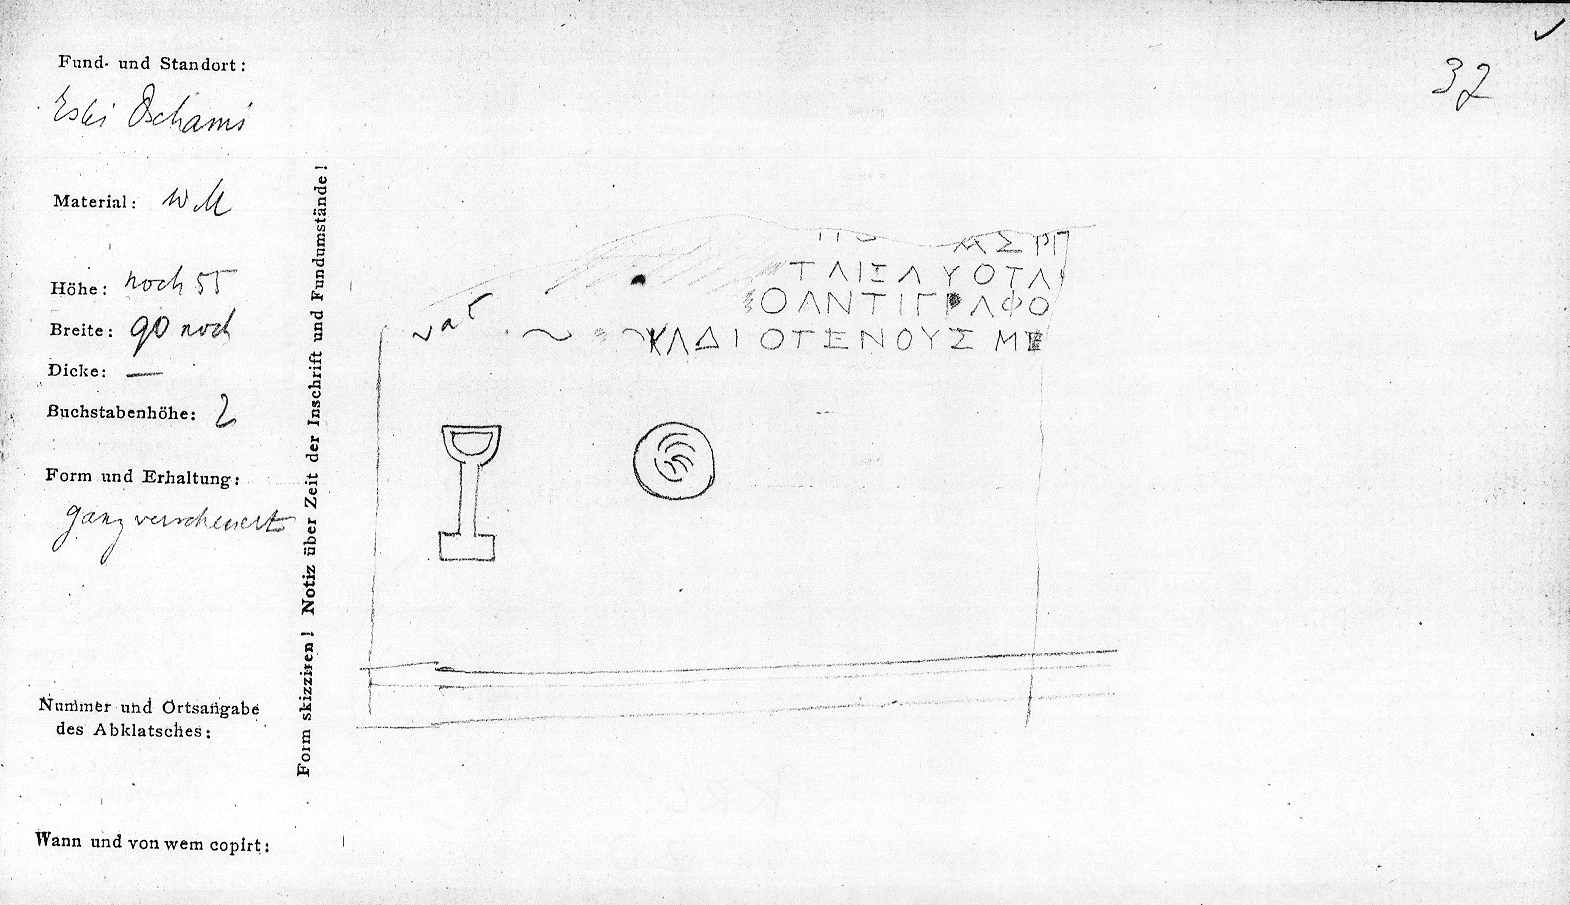 32
Fund- und Standort:
Eski Dschami
Material: w M
Höhe: noch 55
Breite: 90 noch
Dicke: —
Buchstabenhöhe: 2
Form und Erhaltung:
ganz verscheuert
Nummer und Ortsangabe
des Abklatsches:
Wann und von wem copirt:
Form skizziren! Notiz über Zeit der Inschrift und Fundumstände!
ΤΑΙΞΑΥΟΤΑ
ΟΑΝΤΙΓΡΑΦΟ
vac
ΚΑΔΙΟΓΕΝΟΥΣ ΜΕ